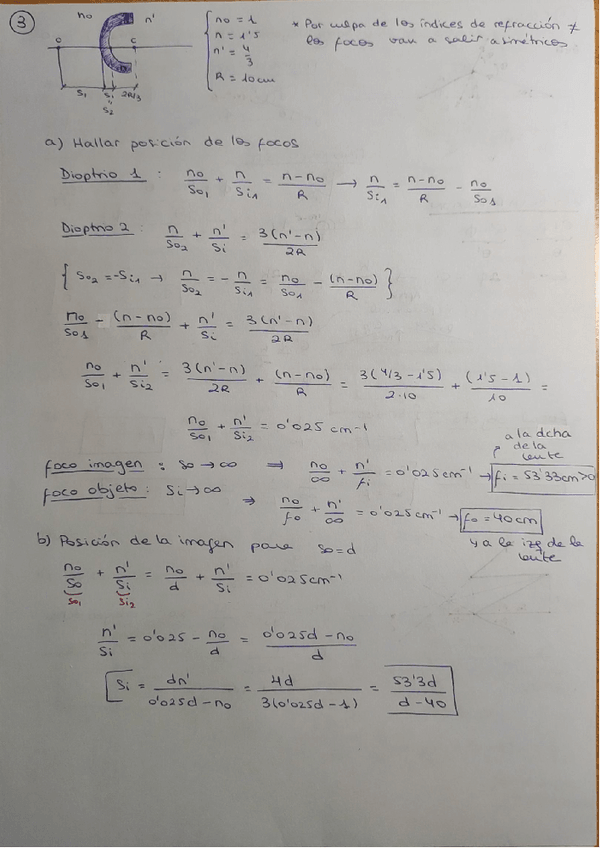 3
n₀ n'
O C
S₁ Sᵢ 2R/3
S₂
n₀ = 1
n = 1'5
n' = 4/3
R = 10 cm
* Por culpa de los índices de refracción ≠
los focos van a salir asimétricos
a) Hallar posición de los focos
Dioptrio 1 : n₀/So₁ + n/Si₁ = (n-n₀)/R → n/Si₁ = (n-n₀)/R - n₀/So₁
Dioptrio 2 : n/So₂ + n'/Si = 3(n'-n)/2R
{ So₂ = -Si₁ → n/So₂ = - n/Si₁ = n₀/So₁ - (n-n₀)/R }
n₀/So₁ - (n-n₀)/R + n'/Si = 3(n'-n)/2R
n₀/So₁ + n'/Si₂ = 3(n'-n)/2R + (n-n₀)/R = 3(4/3-1'5)/2·10 + (1'5-1)/10 =
n₀/So₁ + n'/Si₂ = 0'025 cm⁻¹
a la dcha
de la
lente
foco imagen : So → ∞ ⇒ n₀/∞ + n'/fi = 0'025 cm⁻¹ → fi = 53'33cm>0
foco objeto : Si → ∞ ⇒ n₀/fo + n'/∞ = 0'025 cm⁻¹ → fo = 40 cm
y a la izq de la
lente
b) Posición de la imagen para so = d
n₀/So + n'/Si = n₀/d + n'/Si = 0'025 cm⁻¹
So₁ Si₂
n'/Si = 0'025 - n₀/d = (0'025d - n₀)/d
Si = dn'/(0'025d - n₀) = 4d/3(0'025d - 1) = 53'3d/(d - 40)